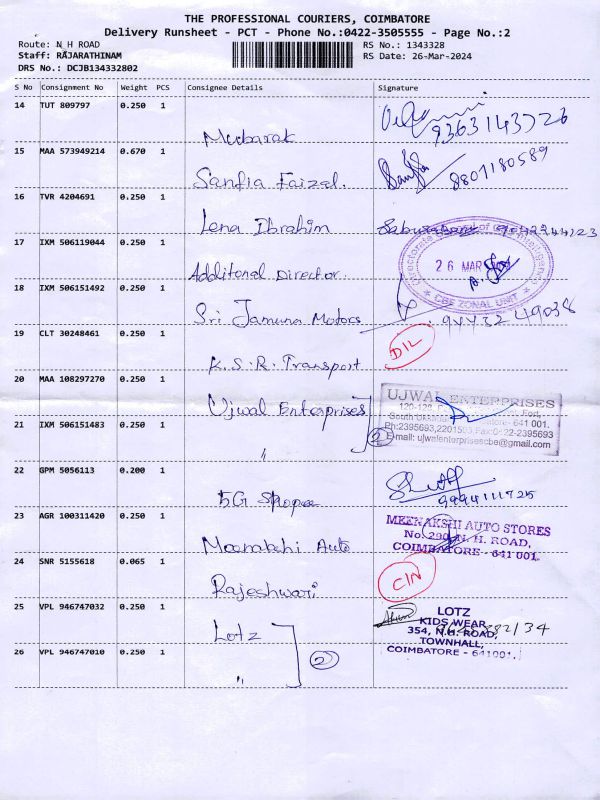 THE PROFESSIONAL COURIERS, COIMBATORE
Delivery Runsheet - PCT - Phone No.:0422-3505555 - Page No.:2
Route: N H ROAD
RS No.: 1343328
Staff: RAJARATHINAM
RS Date: 26-Mar-2024
DRS No.: DCJB134332802
S No Consignment No Weight PCS Consignee Details Signature
14 TUT 809797 0.250 1
Mubarak
15 MAA 573949214 0.670 1
Sanfia Faizal. 8801180589
16 TVR 4204691 0.250 1
Lena Ibrahim
17 IXM 506119044 0.250 1
Additional Director.
26 MAR
CBE ZONAL UNIT
18 IXM 506151492 0.250 1
Sri Jamuna Motors
19 CLT 30248461 0.250 1
K.S.R. Transport
DIL
20 MAA 108297270 0.250 1
Ujwal Enterprises
UJWAL ENTERPRISES
Fort,
641 001.
Ph:2395693,
Fax:0422-2395693
E-mail: ujwalenterprisescbe@gmail.com
21 IXM 506151483 0.250 1
"
2
22 GPM 5056113 0.200 1
5G Shopee
23 AGR 100311420 0.250 1
Meenakshi Auto
MEENAKSHI AUTO STORES
No. 290, N. H. ROAD,
COIMBATORE - 641 001.
24 SNR 5155618 0.065 1
Rajeshwari
CIN
25 VPL 946747032 0.250 1
Lotz
LOTZ
KIDS WEAR
354, N.H. ROAD,
TOWNHALL,
COIMBATORE - 641001.
26 VPL 946747010 0.250 1
"
2